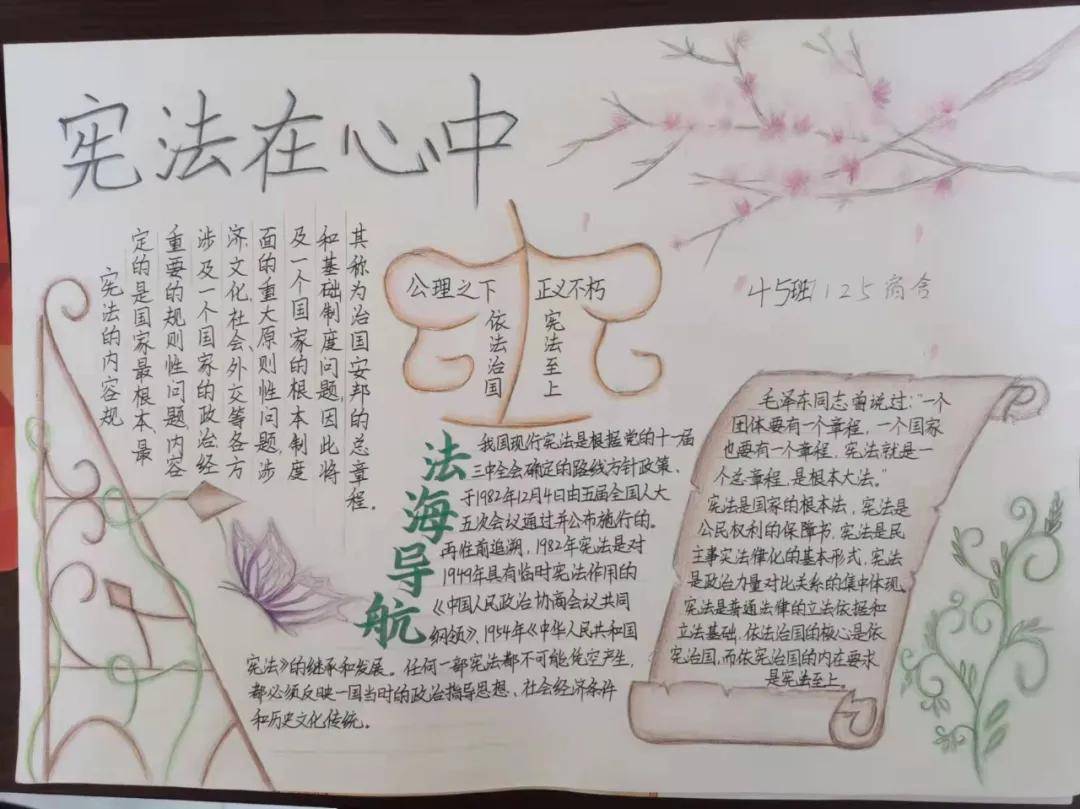 宪法在心中
45班125宿舍
宪法的内容规
定的是国家最根本、最
重要的规则性问题,内容
涉及一个国家的政治、经
济、文化、社会外交等各方
面的重大原则性问题,涉
及一个国家的根本制度
和基础制度问题,因此将
其称为治国安邦的总章程。
公理之下
依法治国
正义不朽
宪法至上
法海导航
我国现行宪法是根据党的十一届
三中全会确定的路线方针政策、
于1982年12月4日由五届全国人大
五次会议通过并公布施行的。
再往前追溯,1982年宪法是对
1949年具有临时宪法作用的
《中国人民政治协商会议共同
纲领》、1954年《中华人民共和国
宪法》的继承和发展。任何一部宪法都不可能凭空产生,
都必须反映一国当时的政治指导思想、社会经济条件
和历史文化传统。
毛泽东同志曾说过:“一个
团体要有一个章程,一个国家
也要有一个章程,宪法就是一
个总章程,是根本大法。”
宪法是国家的根本法,宪法是
公民权利的保障书,宪法是民
主事实法律化的基本形式,宪法
是政治力量对比关系的集中体现,
宪法是普通法律的立法依据和
立法基础,依法治国的核心是依
宪治国,而依宪治国的内在要求
是宪法至上。